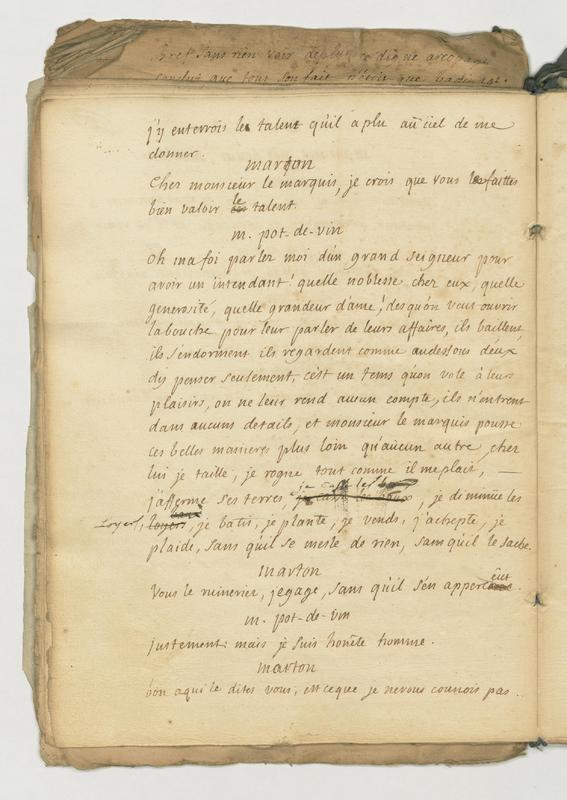 Bret sans rien voir de plus ce digne areopage
conclut que tout son fait n'étoit que badinage.
j'y enterrois les talent qu'il a plu au ciel de me
donner.
marton
Cher monsieur le marquis, je crois que vous les faittes
bien valoir le talent.
m. pot-de-vin
oh ma foi parlez moi d'un grand seigneur pour
avoir un intendant! quelle noblesse chez eux, quelle
generosité, quelle grandeur d'ame! des qu'on veut ouvrir
la bouche pour leur parler de leurs affaires, ils baillent
ils s'endorment ils regardent comme audessous d'eux
d'y penser seulement, c'est un tems qu'on vole à leurs
plaisirs, on ne leur rend aucun compte, ils n'entrent
dans aucuns details, et monsieur le marquis pousse
ces belles manieres plus loin qu'aucun autre, chez
lui je taille, je rogne tout comme il me plait, —
je casse les baux
j'afferme ses terres, je casse les baux, je diminüe les
loyers, je batis, je plante, je vends, j'achepte, je
plaide, sans qu'il se mesle de rien, sans qu'il le sache.
marton
Vous le ruineriez, je gage, sans qu'il s'en apperceut.
m. pot-de-vin
justement: mais je suis honête homme.
marton
bon a qui le dites vous, est ce que je ne vous connois pas.